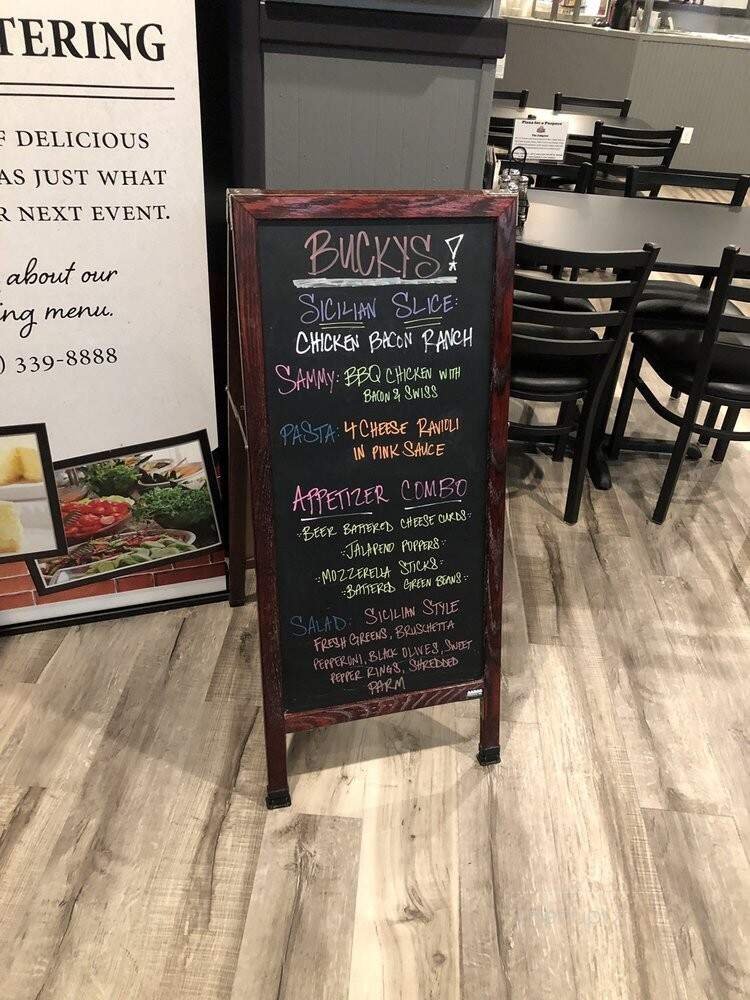 TERING
F DELICIOUS
AS JUST WHAT
R NEXT EVENT.
about our
ng menu.
) 339-8888
BUCKYS!
SICILIAN SLICE:
CHICKEN BACON RANCH
SAMMY: BBQ CHICKEN WITH
BACON & SWISS
PASTA: 4 CHEESE RAVIOLI
IN PINK SAUCE
APPETIZER COMBO
BEER BATTERED CHEESE CURDS
JALAPENO POPPERS
MOZZERELLA STICKS
BATTERED GREEN BEANS
SALAD: SICILIAN STYLE
FRESH GREENS, BRUSCHETTA
PEPPERONI, BLACK OLIVES, SWEET
PEPPER RINGS, SHREDDED
PARM
Pizza for a Purpose